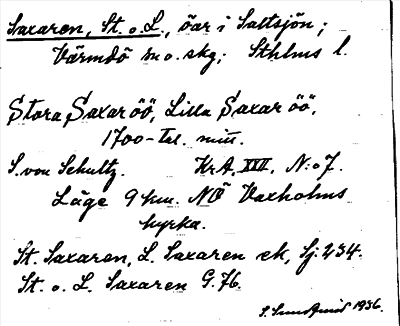 Saxaren, St. o. L., öar i Saltsjön;
Värmdö sn o. skg; Sthlms l.
Stora Saxar öö, Lilla Saxar öö.
1700-tal. mitt.
S. von Schultz. KrA, XXII, N:o 7.
Läge 9 km. NÖ Vaxholms
kyrka.
St. Saxaren, L. Saxaren ek, Sj. 234.
St. o. L. Saxaren G. 76.
S. Sundquist 1936.